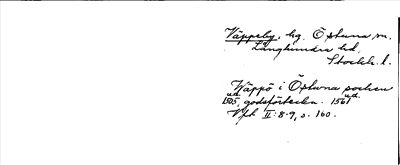 Väppeby, hg. Östuna sn.
Långhundra hd.
Stockh. l.
Wäppö i Östuna socken
1505, godsförteckn. 1561
Vfrl II: 8-9, s. 160.